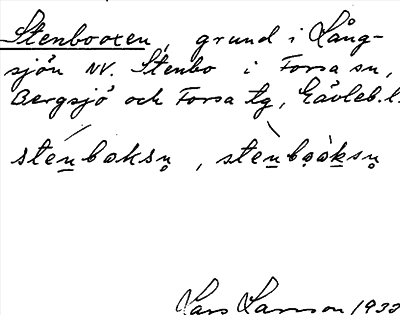 Stenbooxen, grund i Lång-
sjön NV. Stenbo i Forsa sn,
Bergsjö och Forsa tg, Gävleb. l.
stenboksn̥, stenbo̥ȯksn̥
Lars Larsson 1933